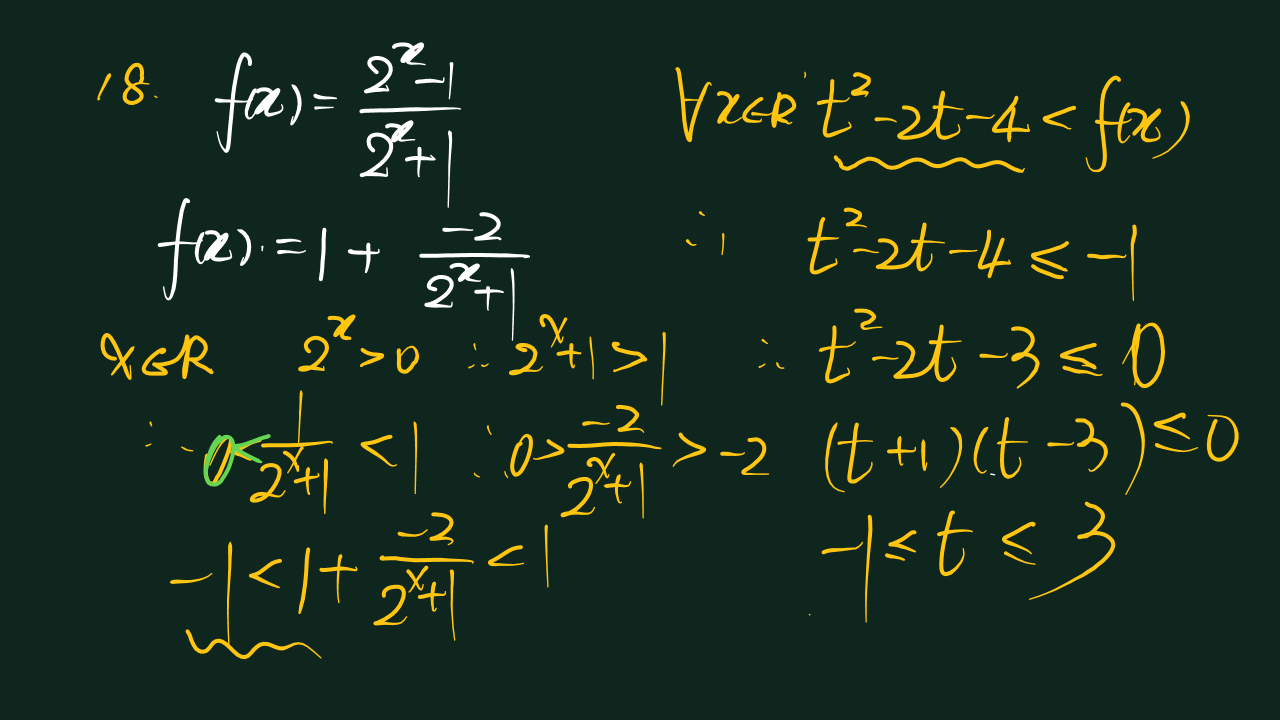 18. f(x) = (2^x - 1)/(2^x + 1)
f(x) = 1 + (-2)/(2^x + 1)
x∈R 2^x > 0 ∴ 2^x + 1 > 1
∴ 0 < 1/(2^x + 1) < 1 ∴ 0 > (-2)/(2^x + 1) > -2
-1 < 1 + (-2)/(2^x + 1) < 1
∀x∈R t² - 2t - 4 < f(x)
∴ t² - 2t - 4 ≤ -1
∴ t² - 2t - 3 ≤ 0
(t + 1)(t - 3) ≤ 0
-1 ≤ t ≤ 3